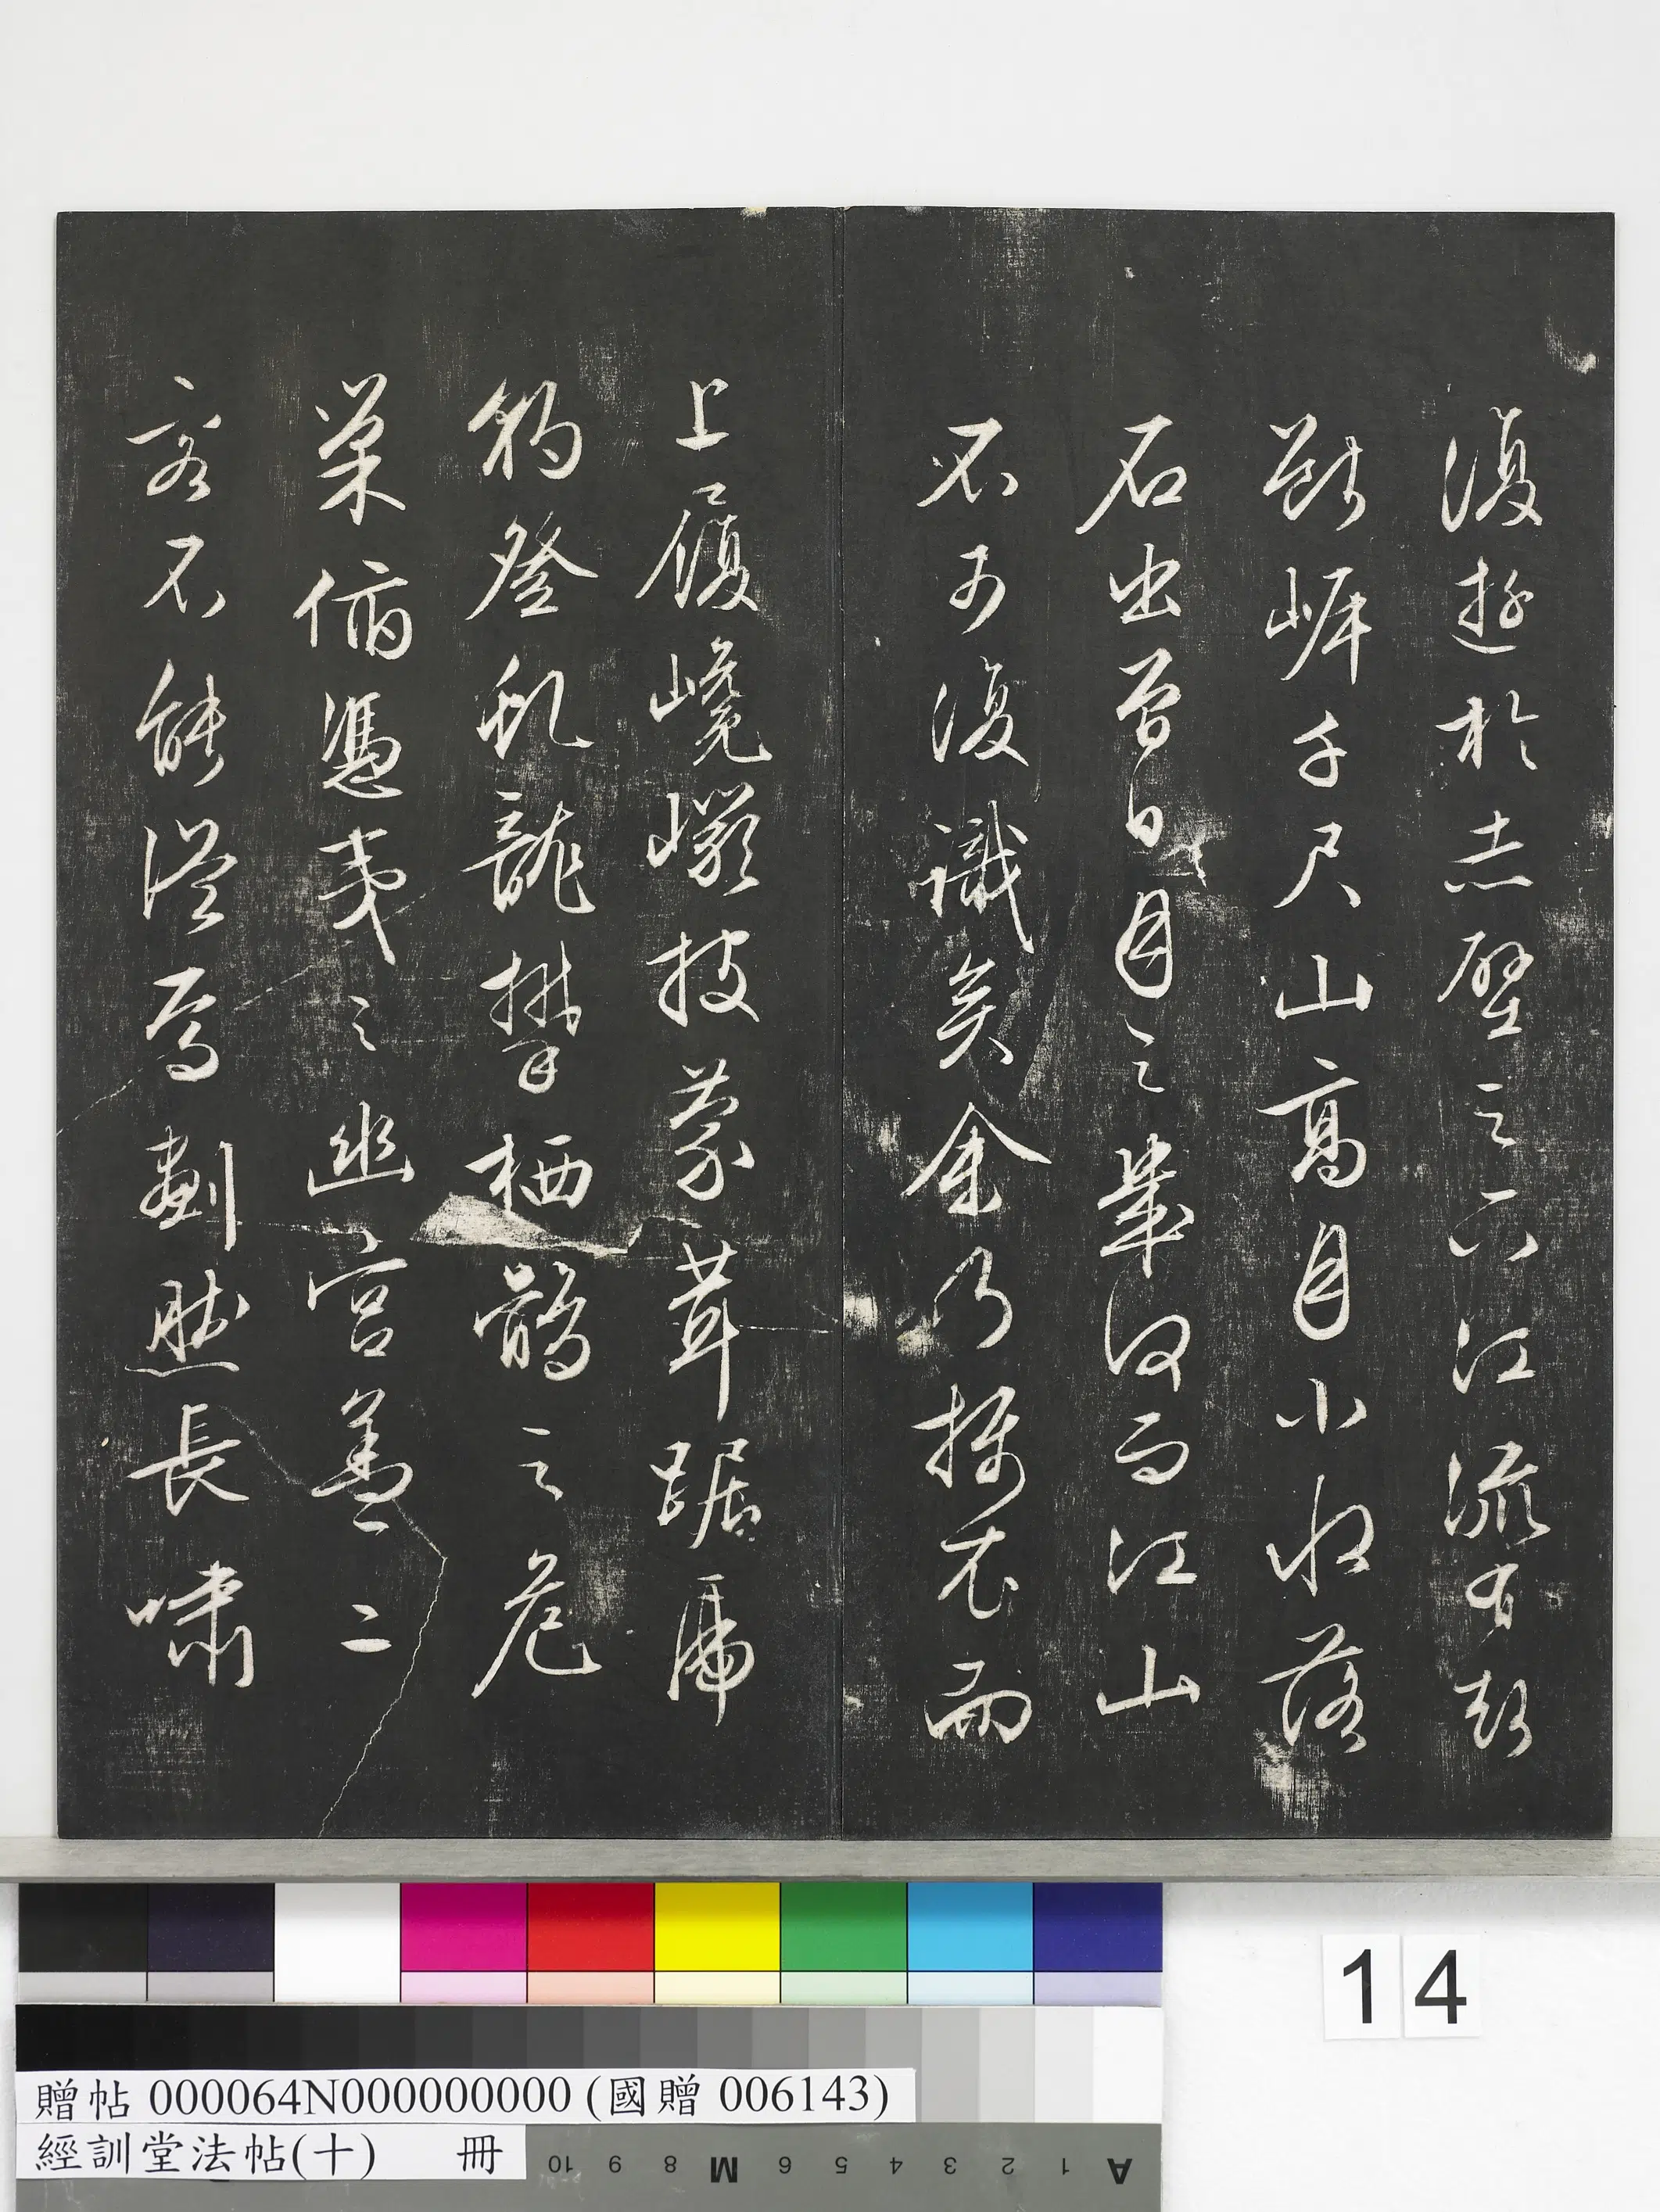 復遊於赤壁之下江流有聲
斷岸千尺山高月小水落
石出曾日月之幾何而江山
不可復識矣余乃攝衣而
上履巉巖披蒙茸踞虎
豹登虬龍攀栖鶻之危
巢俯憑夷之幽宮蓋二
客不能從焉劃然長嘯
14
贈帖 000064N000000000 (國贈 006143)
經訓堂法帖(十) 冊
A 1 2 3 4 5 6 M 8 9 10